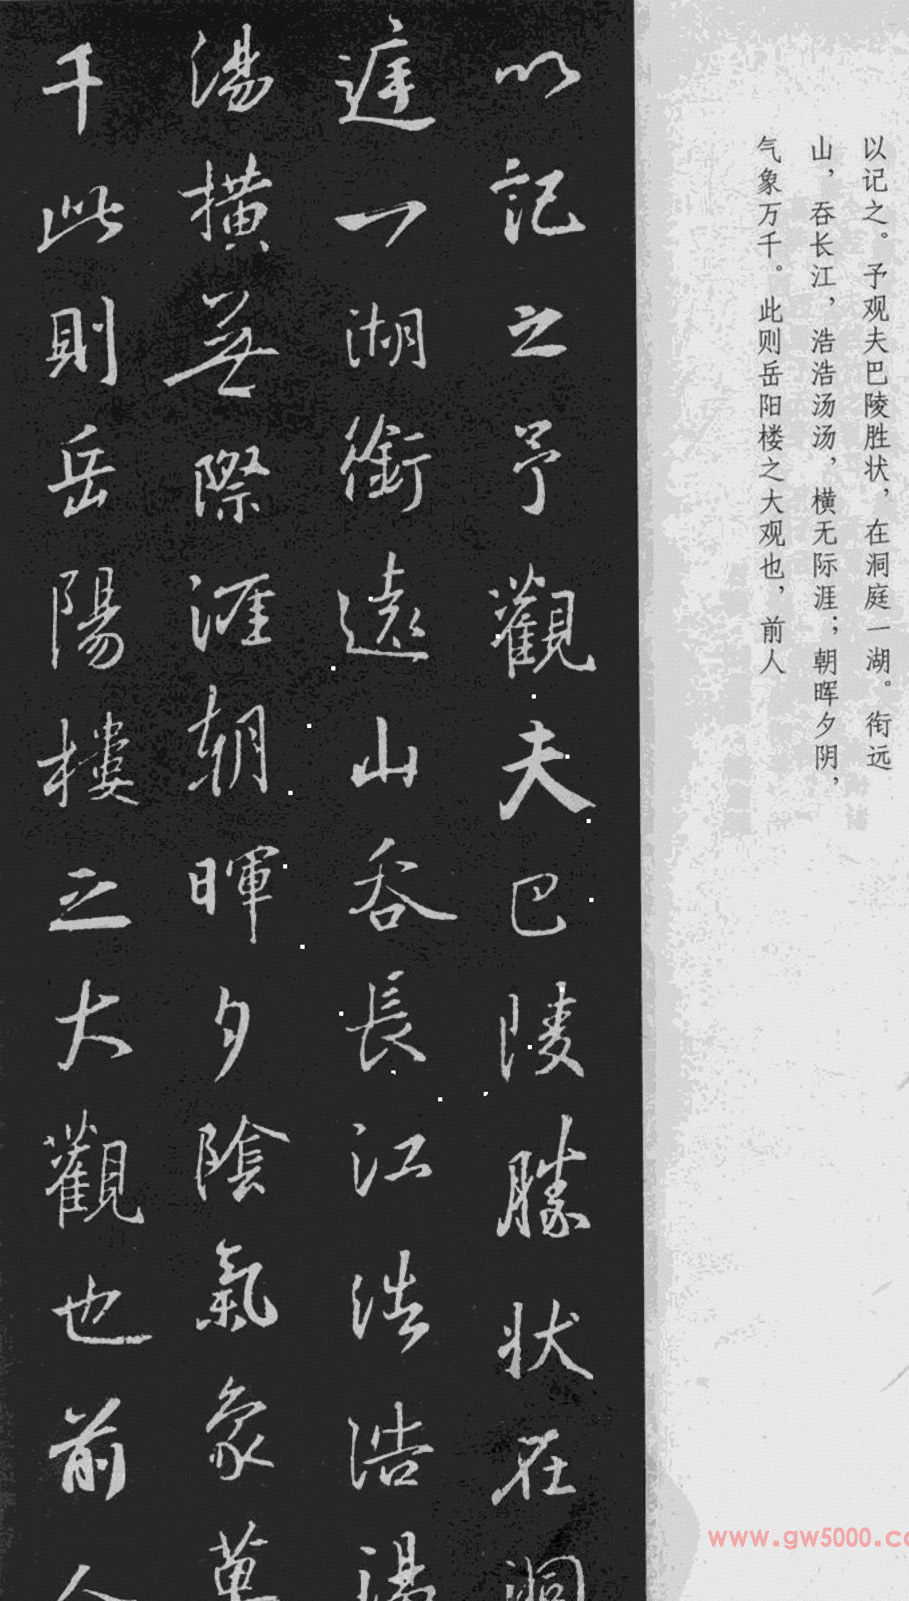 以记之。予观夫巴陵胜状，在洞庭一湖。衔远
山，吞长江，浩浩汤汤，横无际涯；朝晖夕阴，
气象万千。此则岳阳楼之大观也，前人
以記之予觀夫巴陵勝狀在洞
庭一湖銜遠山吞長江浩浩湯
湯橫無際涯朝暉夕陰氣象萬
千此則岳陽樓之大觀也前人